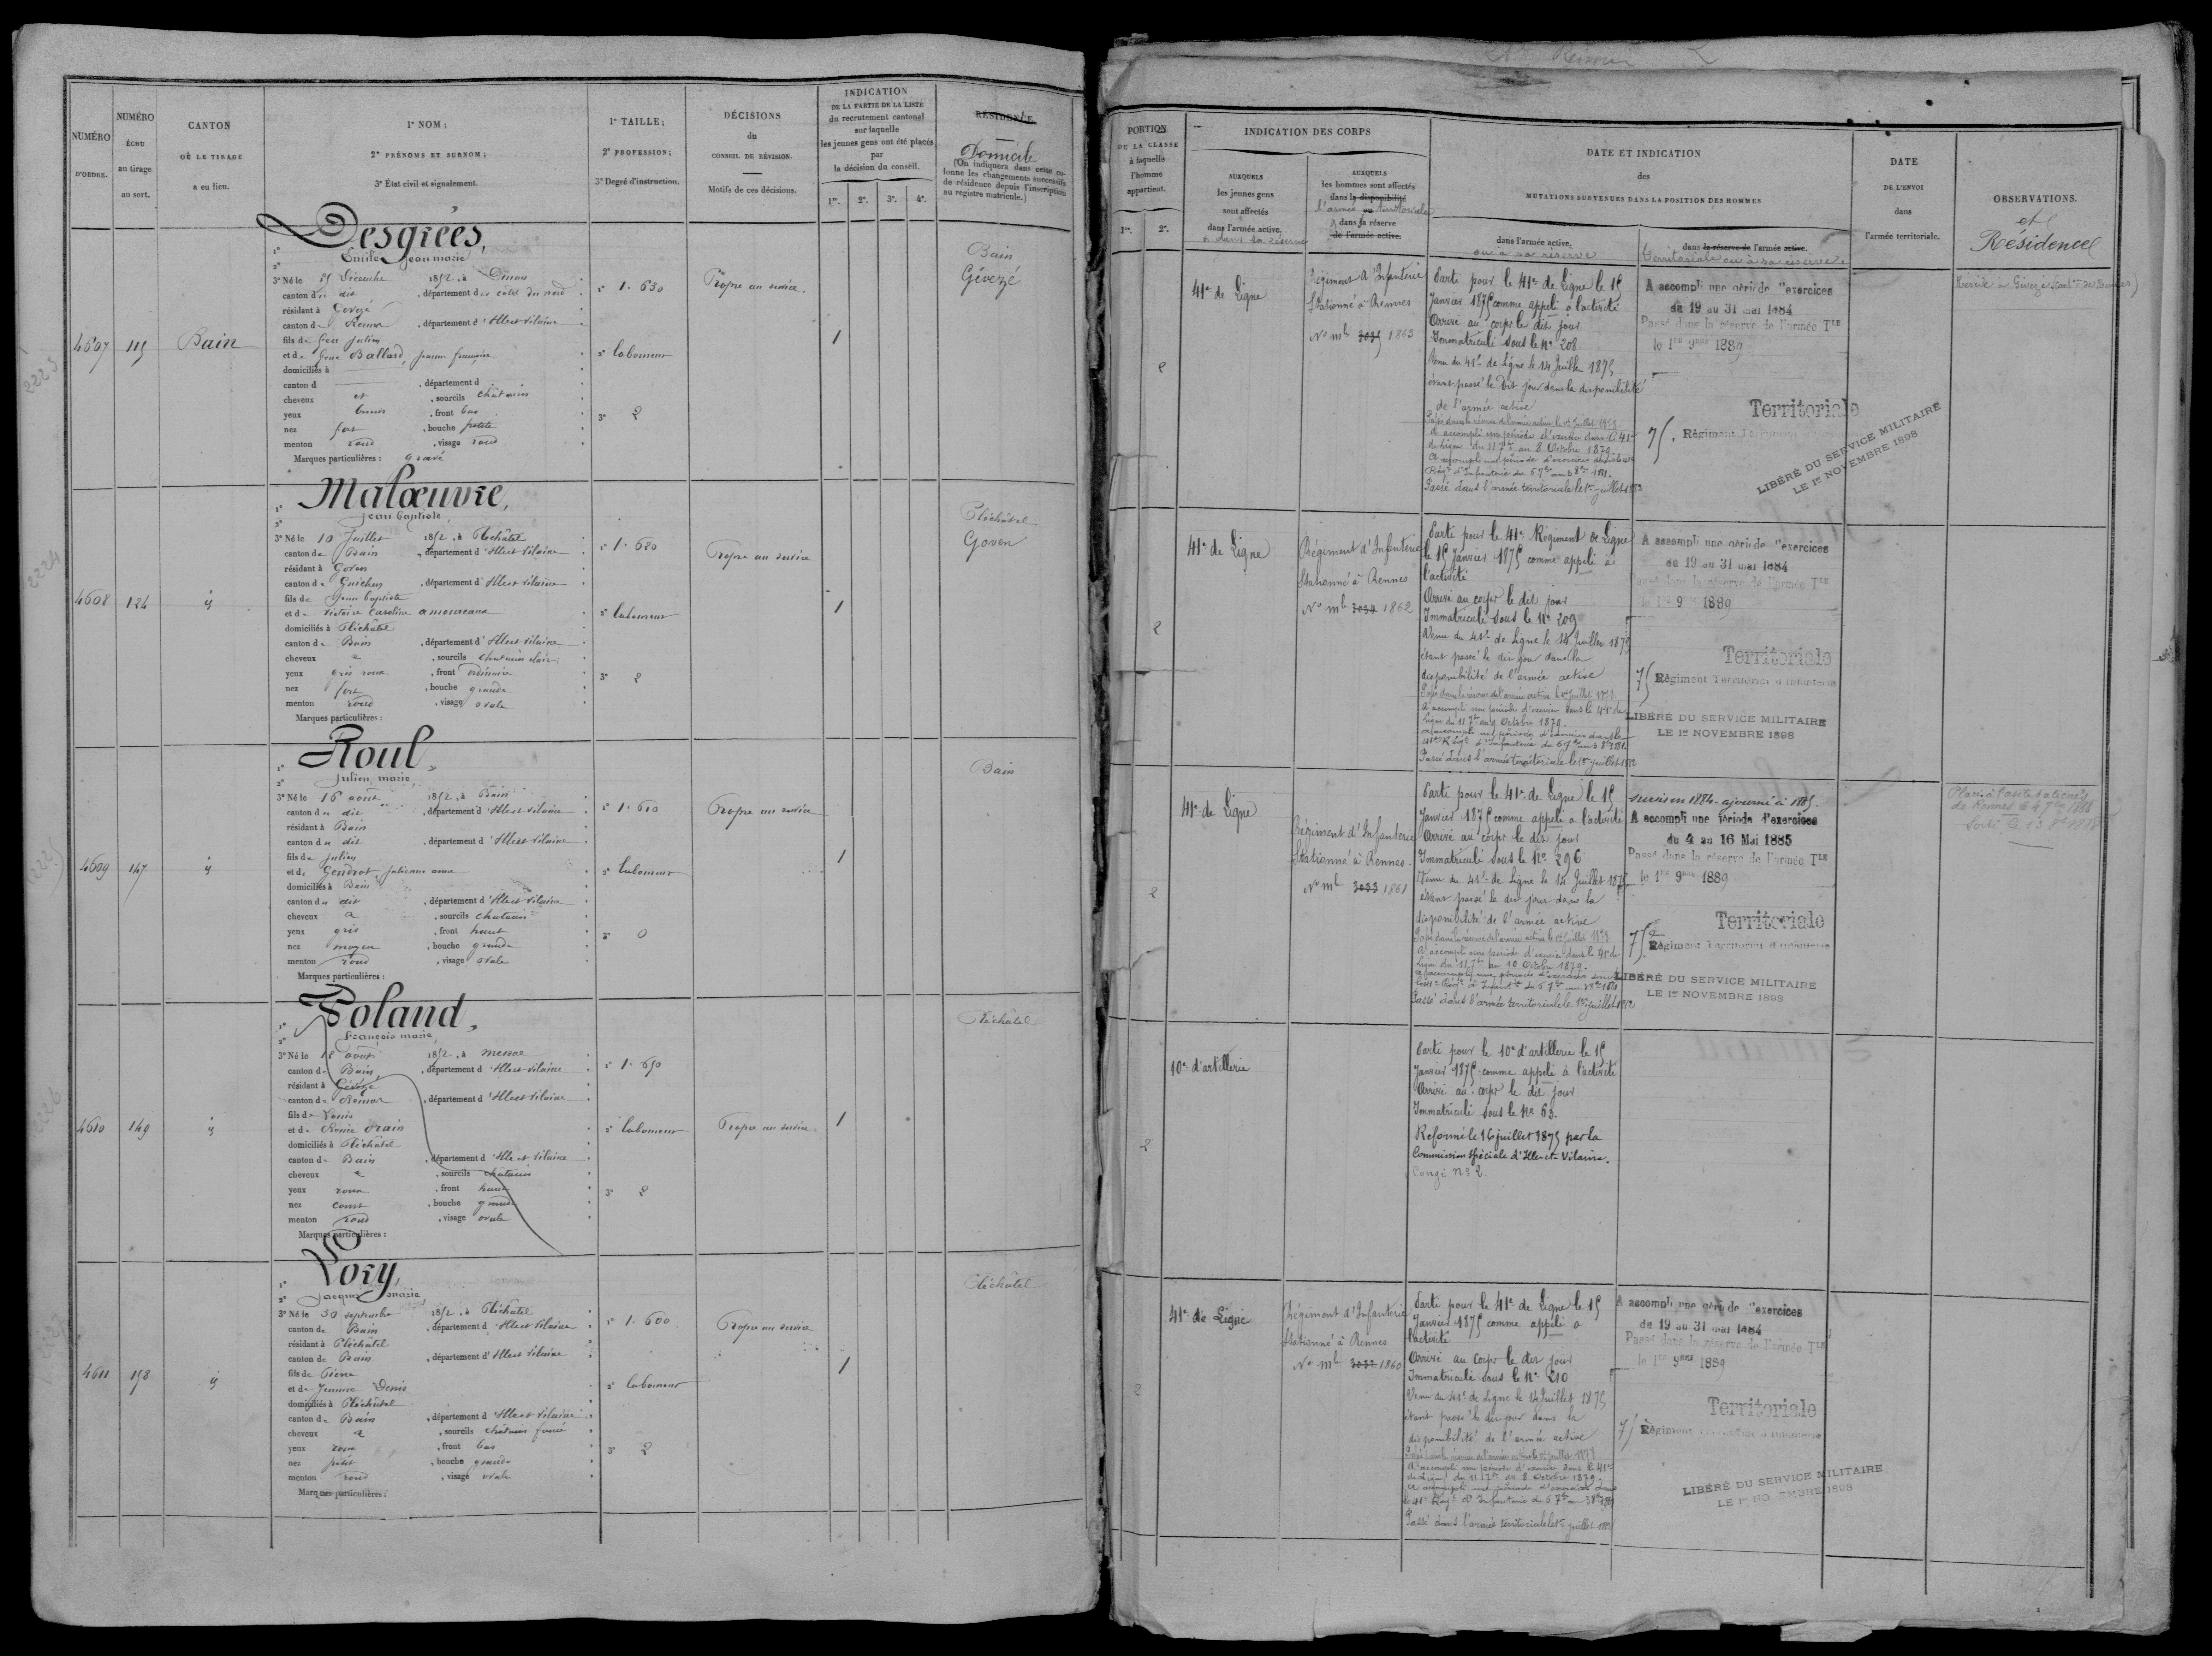 NUMÉRO
D'ORDRE.
NUMÉRO
ÉCHU
au tirage
au sort.
CANTON
OÙ LE TIRAGE
a eu lieu.
1° NOM;
2° PRÉNOMS ET SURNOM;
3° État civil et signalement.
1° TAILLE;
2° PROFESSION;
3° Degré d'instruction.
DÉCISIONS
du
CONSEIL DE RÉVISION.
Motifs de ces décisions.
INDICATION
DE LA PARTIE DE LA LISTE
du recrutement cantonal
sur laquelle
les jeunes gens ont été placés
par
la décision du conseil.
1re. 2e. 3e. 4e.
RÉSIDENCE
Domicile
(On indiquera dans cette co-
lonne les changements successifs
de résidence depuis l'inscription
au registre matricule.)
4607
115
Bain
Desgrées,
1°
2° Emile Jean marie
3° Né le 25 Décembre 1852, à Dinan
canton du dit, département des côtes du nord
résidant à Gévezé
canton de Rennes, département d'Ille et Vilaine
fils de feu Julien
et de feue Ballard, jeanne françoise
domiciliés à
canton d , département d
cheveux et , sourcils chatains
yeux bruns , front bas
nez fort , bouche petite
menton rond , visage rond
Marques particulières : gravé
1° 1. 630
2° laboureur
3° 2
Propre au service.
1
Bain
Gévezé
4608
124
id
Malœuvre,
1°
2° Jean baptiste
3° Né le 10 Juillet 1852, à Pléchâtel
canton de Bain, département d'Ille et Vilaine
résidant à Goven
canton de Guichen, département d'Ille et Vilaine
fils de Jean baptiste
et de victoire Caroline amoureaux
domiciliés à Pléchâtel
canton de Bain, département d'Ille et Vilaine
cheveux , sourcils chatains clair
yeux gris roux , front ordinaire
nez fort , bouche grande
menton rond , visage ovale
Marques particulières :
1° 1. 680
2° laboureur
3° 2
Propre au service
1
Pléchâtel
Goven
4609
147
id
Roul,
1°
2° Julien marie
3° Né le 16 août 1852, à Bain
canton du dit, département d'Ille et Vilaine
résidant à Bain
canton du dit, département d'Ille et Vilaine
fils de Julien
et de Gendrot, julienne anne
domiciliés à Bain
canton du dit, département d'Ille et Vilaine
cheveux , sourcils chatains
yeux gris , front haut
nez moyen , bouche grande
menton rond , visage ovale
Marques particulières :
1° 1. 610
2° laboureur
3° 0
Propre au service
1
Bain
4610
149
id
Poland,
1°
2° François marie
3° Né le 18 août 1852, à messac
canton de Bain, département d'Ille et Vilaine
résidant à Gévezé
canton de Rennes, département d'Ille et Vilaine
fils de
et de Renée orain
domiciliés à Pléchâtel
canton de Bain, département d'Ille et Vilaine
cheveux , sourcils chatains
yeux roux , front haut
nez court , bouche grande
menton rond , visage ovale
Marques particulières :
1° 1. 650
2° laboureur
3° 2
Propre au service
1
Pléchâtel
4611
158
id
Lory,
1°
2° Jacques marie
3° Né le 30 septembre 1852, à Pléchâtel
canton de Bain, département d'Ille et Vilaine
résidant à Pléchâtel
canton de Bain, département d'Ille et Vilaine
fils de Pierre
et de Jeanne Denis
domiciliés à Pléchâtel
canton de Bain, département d'Ille et Vilaine
cheveux , sourcils chatains foncé
yeux roux , front bas
nez petit , bouche grande
menton rond , visage ovale
Marques particulières :
1° 1. 600
2° laboureur
3° 2
Propre au service
1
Pléchâtel
PORTION
DE LA CLASSE
à laquelle
l'homme
appartient.
1re. 2e.
INDICATION DES CORPS
AUXQUELS
les jeunes gens
sont affectés
dans l'armée active.
& dans la réserve
AUXQUELS
les hommes sont affectés
dans la disponibilité
l'armée ou territoriale
& dans sa réserve
de l'armée active.
DATE ET INDICATION
des
MUTATIONS SURVENUES DANS LA POSITION DES HOMMES
dans l'armée active.
ou à sa réserve
dans la réserve de l'armée active.
territoriale ou à sa réserve.
DATE
DE L'ENVOI
dans
l'armée territoriale.
OBSERVATIONS.
et
Résidence
2
41e de Ligne
Régiment d'Infanterie
Stationné à Rennes
No ml 3035 1863
Parti pour le 41e de Ligne le 15
Janvier 1875 comme appelé à l'activité
Arrivé au corps le dit jour
Immatriculé sous le No 208
Venu du 41e de Ligne le 14 Juillet 1875
étant passé le dit jour dans la disponibilité
de l'armée active
Passé dans la réserve de l'armée active le 1er Juillet 1878
A accompli une période d'exercice dans le 41e
de Ligne du 11 7bre au 8 Octobre 1879.
A accompli une période d'exercices dans le 41e
Régt d'Infanterie du 6 7bre au 3 8bre 1881.
Passé dans l'armée territoriale le 1er juillet 1882
A accompli une période d'exercices
du 19 au 31 mai 1884
Passé dans la réserve de l'armée Tle
le 1er 9bre 1889
Territoriale
75. Régiment Territorial d'Infanterie
LIBÉRÉ DU SERVICE MILITAIRE
LE 1er NOVEMBRE 1898
2
41e de Ligne
Régiment d'Infanterie
Stationné à Rennes
No ml 3034 1862
Parti pour le 41e Régiment de Ligne
le 15 Janvier 1875 comme appelé à
l'activité
Arrivé au corps le dit jour
Immatriculé sous le No 209
Venu du 41e de Ligne le 14 Juillet 1875
étant passé le dit jour dans la
disponibilité de l'armée active
Passé dans la réserve de l'armée active le 1er Juillet 1878
A accompli une période d'exercice dans le 41e de
Ligne du 11 7bre au 9 Octobre 1879.
A accompli une période d'exercices dans le
41e Régt d'Infanterie du 6 7bre au 3 8bre 1881
Passé dans l'armée territoriale le 1er juillet 1882
A accompli une période d'exercices
du 19 au 31 mai 1884
Passé dans la réserve de l'armée Tle
le 1er 9bre 1889
Territoriale
75 Régiment Territorial d'Infanterie
LIBÉRÉ DU SERVICE MILITAIRE
LE 1er NOVEMBRE 1898
2
41e de Ligne
Régiment d'Infanterie
Stationné à Rennes
No ml 3033 1861
Parti pour le 41e de Ligne le 15
Janvier 1875 comme appelé à l'activité
Arrivé au corps le dit jour
Immatriculé sous le No 296
Venu du 41e de Ligne le 14 Juillet 1875
étant passé le dit jour dans la
disponibilité de l'armée active
Passé dans la réserve de l'armée active le 1er Juillet 1878
A accompli une période d'exercice dans le 41e de
Ligne du 11 7bre au 10 Octobre 1879.
A accompli une période d'exercices dans
le 41e Régt d'Infanterie du 6 7bre au 3 8bre 1881
Passé dans l'armée territoriale le 1er juillet 1882
sursis en 1884 ajourné à 1885.
A accompli une période d'exercices
du 4 au 16 Mai 1885
Passé dans la réserve de l'armée Tle
le 1er 9bre 1889
Territoriale
75e Régiment Territorial d'Infanterie
LIBÉRÉ DU SERVICE MILITAIRE
LE 1er NOVEMBRE 1898
Placé à l'asile d'aliénés
de Rennes le 4 7bre 1888
Sorti le 13 8bre 1888
2
10e d'artillerie
Parti pour le 10e d'artillerie le 15
Janvier 1875 comme appelé à l'activité
Arrivé au corps le dit jour
Immatriculé sous le No 63.
Réformé le 16 juillet 1875 par la
Commission spéciale d'Ille-et-Vilaine.
Congé No 2.
2
41e de Ligne
Régiment d'Infanterie
Stationné à Rennes
No ml 3032 1860
Parti pour le 41e de Ligne le 15
Janvier 1875 comme appelé à
l'activité
Arrivé au corps le dit jour
Immatriculé sous le No 210
Venu du 41e de Ligne le 14 Juillet 1875
étant passé le dit jour dans la
disponibilité de l'armée active
Passé dans la réserve de l'armée active le 1er juillet 1878
A accompli une période d'exercice dans le 41e
de Ligne du 11 7bre au 8 Octobre 1879.
A accompli une période d'exercices dans
le 41e Régt d'Infanterie du 6 7bre au 3 8bre 1881
Passé dans l'armée territoriale le 1er juillet 1882
A accompli une période d'exercices
du 19 au 31 mai 1884
Passé dans la réserve de l'armée Tle
le 1er 9bre 1889
Territoriale
75 Régiment Territorial d'Infanterie
LIBÉRÉ DU SERVICE MILITAIRE
LE 1er NOVEMBRE 1898